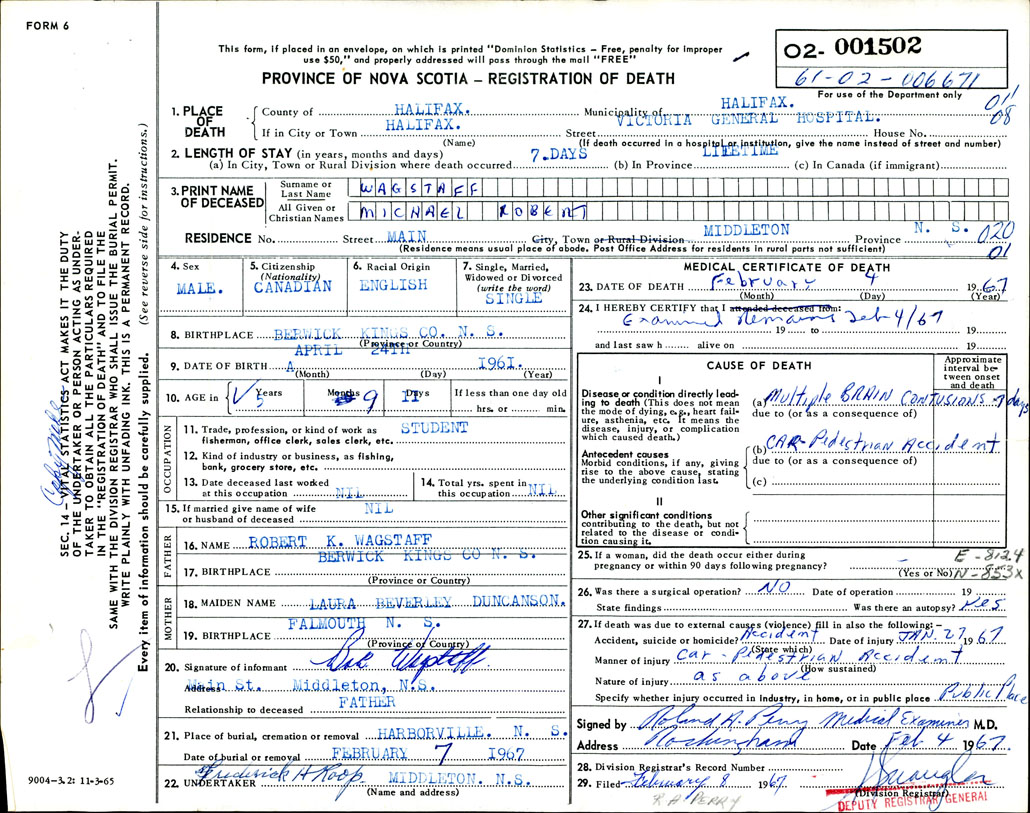 FORM 6
This form, if placed in an envelope, on which is printed "Dominion Statistics – Free, penalty for improper
use $50," and properly addressed will pass through the mail "FREE"
PROVINCE OF NOVA SCOTIA – REGISTRATION OF DEATH
02- 001502
61-02-006671
For use of the Department only
011
08
1. PLACE OF DEATH
County of HALIFAX. Municipality of HALIFAX.
If in City or Town HALIFAX. Street VICTORIA GENERAL HOSPITAL. House No.
(Name) (If death occurred in a hospital or institution, give the name instead of street and number)
2. LENGTH OF STAY (in years, months and days)
(a) In City, Town or Rural Division where death occurred 7.DAYS (b) In Province LIFETIME (c) In Canada (if immigrant)
3. PRINT NAME OF DECEASED
Surname or Last Name WAGSTAFF
All Given or Christian Names MICHAEL ROBERT
RESIDENCE No. Street MAIN City, Town or Rural Division MIDDLETON Province N. S. 020
(Residence means usual place of abode. Post Office Address for residents in rural parts not sufficient) 01
4. Sex
MALE.
5. Citizenship
(Nationality)
CANADIAN
6. Racial Origin
ENGLISH
7. Single, Married,
Widowed or Divorced
(write the word)
SINGLE
8. BIRTHPLACE BERWICK KINGS CO. N. S.
(Province or Country)
9. DATE OF BIRTH APRIL 24TH 1961.
(Month) (Day) (Year)
10. AGE in 5 Years Months 9 11 Days If less than one day old
hrs. or min.
OCCUPATION
11. Trade, profession, or kind of work as STUDENT
fisherman, office clerk, sales clerk, etc.
12. Kind of industry or business, as fishing,
bank, grocery store, etc.
13. Date deceased last worked
at this occupation NIL
14. Total yrs. spent in
this occupation NIL
15. If married give name of wife
or husband of deceased NIL
FATHER
16. NAME ROBERT K. WAGSTAFF
17. BIRTHPLACE BERWICK KINGS CO N. S.
(Province or Country)
MOTHER
18. MAIDEN NAME LAURA BEVERLEY DUNCANSON.
19. BIRTHPLACE FALMOUTH N. S.
(Province or Country)
20. Signature of informant Bob Wagstaff
Address Main St. Middleton, N.S.
Relationship to deceased FATHER
21. Place of burial, cremation or removal HARBORVILLE. N. S.
Date of burial or removal FEBRUARY 7 1967
22. UNDERTAKER Frederick H Roop MIDDLETON. N.S.
(Name and address)
MEDICAL CERTIFICATE OF DEATH
23. DATE OF DEATH February 4 1967
(Month) (Day) (Year)
24. I HEREBY CERTIFY that I attended deceased from:
Examined Remains Feb 4/67
19 to 19
and last saw h alive on 19
CAUSE OF DEATH
Approximate interval between onset and death
I
Disease or condition directly leading to death (This does not mean the mode of dying, e.g., heart failure, asthenia, etc. It means the disease, injury, or complication which caused death.)
(a) Multiple BRAIN CONTUSIONS 7 days
due to (or as a consequence of)
Antecedent causes
Morbid conditions, if any, giving rise to the above cause, stating the underlying condition last.
(b) CAR-Pedestrian Accident
due to (or as a consequence of)
(c)
II
Other significant conditions
contributing to the death, but not related to the disease or condition causing it.
25. If a woman, did the death occur either during
pregnancy or within 90 days following pregnancy?
(Yes or No)
E-8124
N-853X
26. Was there a surgical operation? NO Date of operation 19
State findings Was there an autopsy? Yes
27. If death was due to external causes (violence) fill in also the following: –
Accident, suicide or homicide? Accident Date of injury JAN. 27 1967
(State which)
Manner of injury Car - Pedestrian Accident
(How sustained)
Nature of injury as above
Specify whether injury occurred in industry, in home, or in public place Public Place
Signed by Roland A. Perry Medical Examiner M.D.
Address Rockingham Date Feb 4 1967.
28. Division Registrar's Record Number
29. Filed February 8 1967
(Division Registrar)
R A PERRY
DEPUTY REGISTRAR GENERAL
SEC. 14 – VITAL STATISTICS ACT MAKES IT THE DUTY
OF THE UNDERTAKER OR PERSON ACTING AS UNDER-
TAKER TO OBTAIN ALL THE PARTICULARS REQUIRED
IN THE "REGISTRATION OF DEATH" AND TO FILE THE
SAME WITH THE DIVISION REGISTRAR WHO SHALL ISSUE THE BURIAL PERMIT.
WRITE PLAINLY WITH UNFADING INK. THIS IS A PERMANENT RECORD.
Every item of information should be carefully supplied. (See reverse side for instructions.)
9004-3.2: 11-3-65